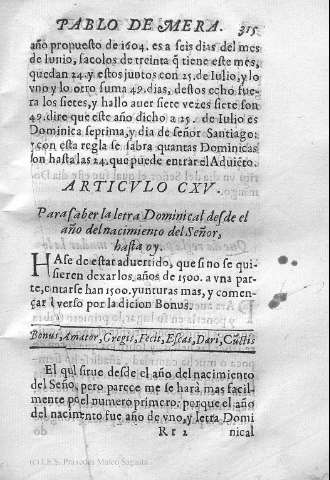 PABLO DE MERA. 315
año propuesto de 1604. es a seis dias del mes
de Iunio, sacolos de treinta q̃ tiene este mes,
quedan 24. y estos juntos con 25. de Iulio, y lo
vno y lo otro suma 49. dias, destos echo fue-
ra los sietes, y hallo auer siete vezes siete son
49. dire que este año dicho a 25. de Iulio es
Dominica septima, y dia de señor Santiago:
y con esta regla se sabra quantas Dominicas
son hasta las 24. que puede entrar el Aduiẽto.
ARTICVLO CXV.
Para saber la letra Dominical desde el
año del nacimiento del Señor,
hasta oy.
HAse de estar aduertido, que si no se qui-
sieren dexar los años de 1500. a vna par-
te, contarse han 1500. y unturas mas, y comen-
çar l verso por la dicion Bonus.
Bonus, Amator, Gregis, Fecit, Escas, Dari, Cũctis
El qual sirue desde el año del nacimiento
del Señor, pero parece me se harà mas facil-
mente por el numero primero: porque el año
del nacimento fue año de vno, y letra Domi
Rr 2 nical
(c) I.E.S. Práxedes Mateo Sagasta